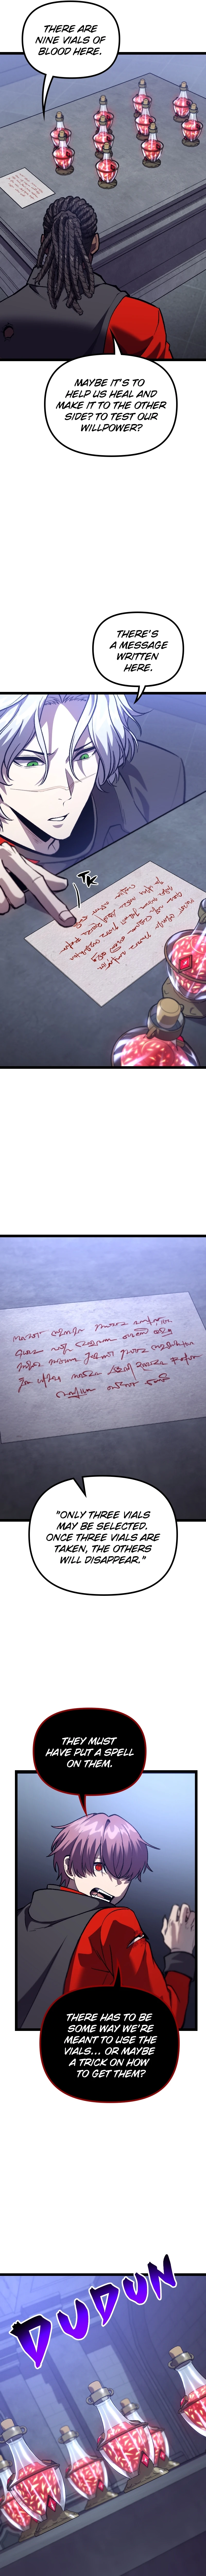 THERE ARE
NINE VIALS OF
BLOOD HERE.
MAYBE IT'S TO
HELP US HEAL AND
MAKE IT TO THE OTHER
SIDE? TO TEST OUR
WILLPOWER?
THERE'S
A MESSAGE
WRITTEN
HERE.
TK
"ONLY THREE VIALS
MAY BE SELECTED.
ONCE THREE VIALS ARE
TAKEN, THE OTHERS
WILL DISAPPEAR."
THEY MUST
HAVE PUT A SPELL
ON THEM.
THERE HAS TO BE
SOME WAY WE'RE
MEANT TO USE THE
VIALS... OR MAYBE
A TRICK ON HOW
TO GET THEM?
DUDUN